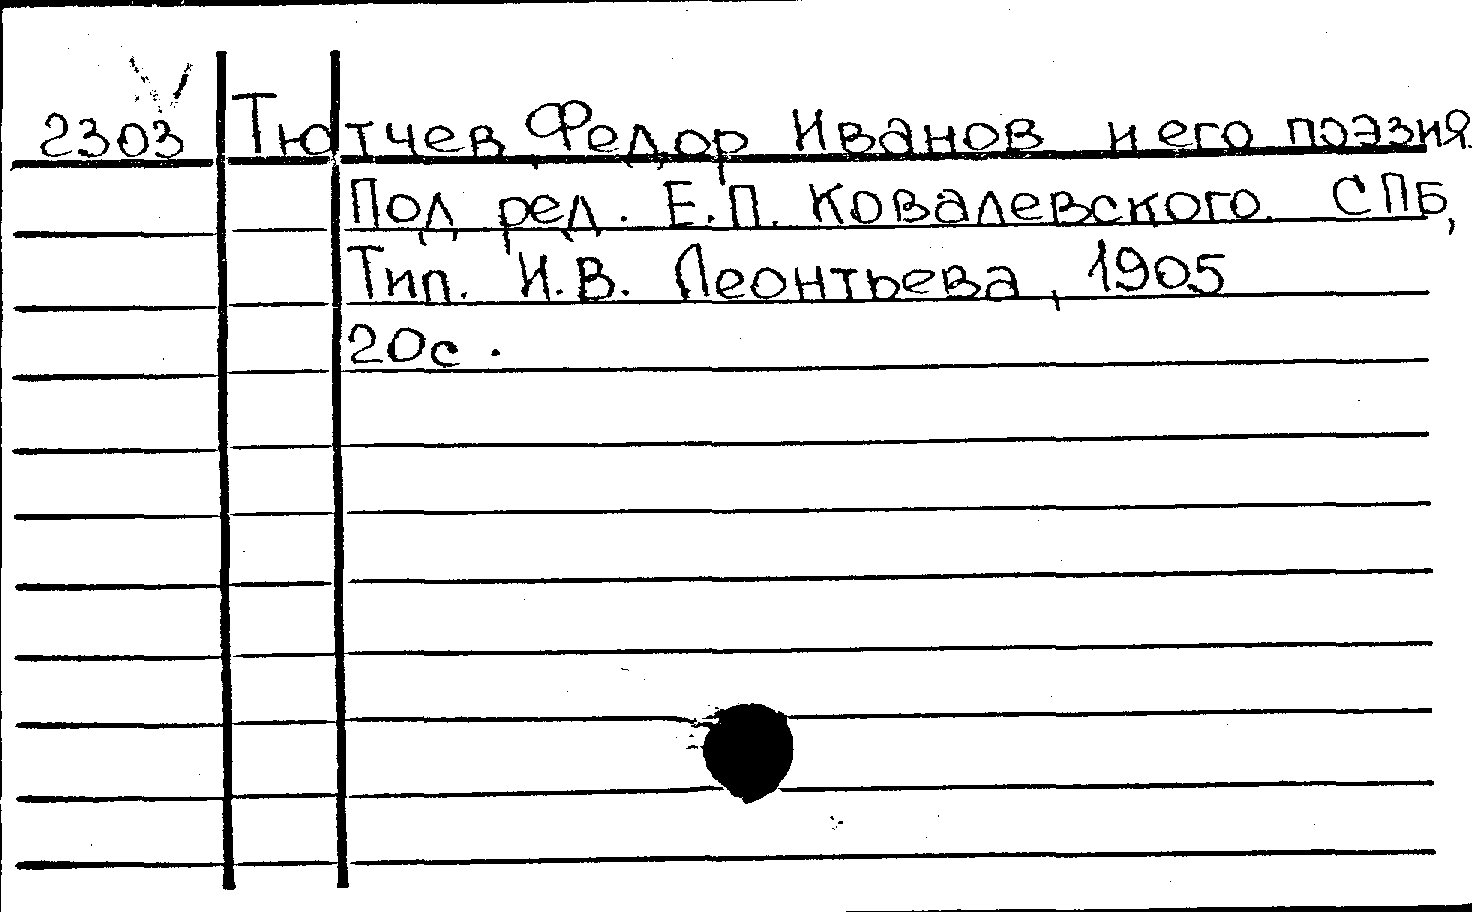 2303 Тютчев, Федор Иванов и его поэзия.
Под ред. Е.П. Ковалевского. СПБ,
Тип. И.В. Леонтьева, 1905
20с.